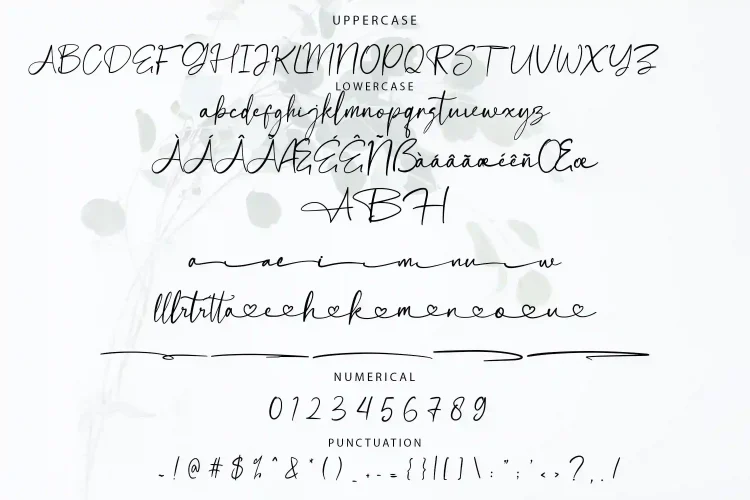 UPPERCASE
ABCDEFGHIJKLMNOPQRSTUVWXYZ
LOWERCASE
abcdefghijklmnopqrstuvwxyz
ÀÁÂÃÆÉÊÑßàáâãæéêñŒœ
ABH
a ae i m nu w
a e h k m n o u
NUMERICAL
0123456789
PUNCTUATION
~!@#$%^&*()_+-={}|[]\:";'<>?,./